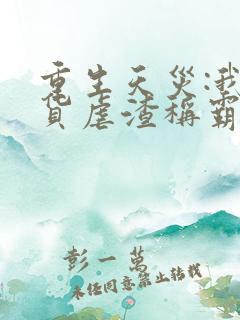 重生天災:我
囤貨虐渣稱霸
彭一萬
未任同意禁止轉載